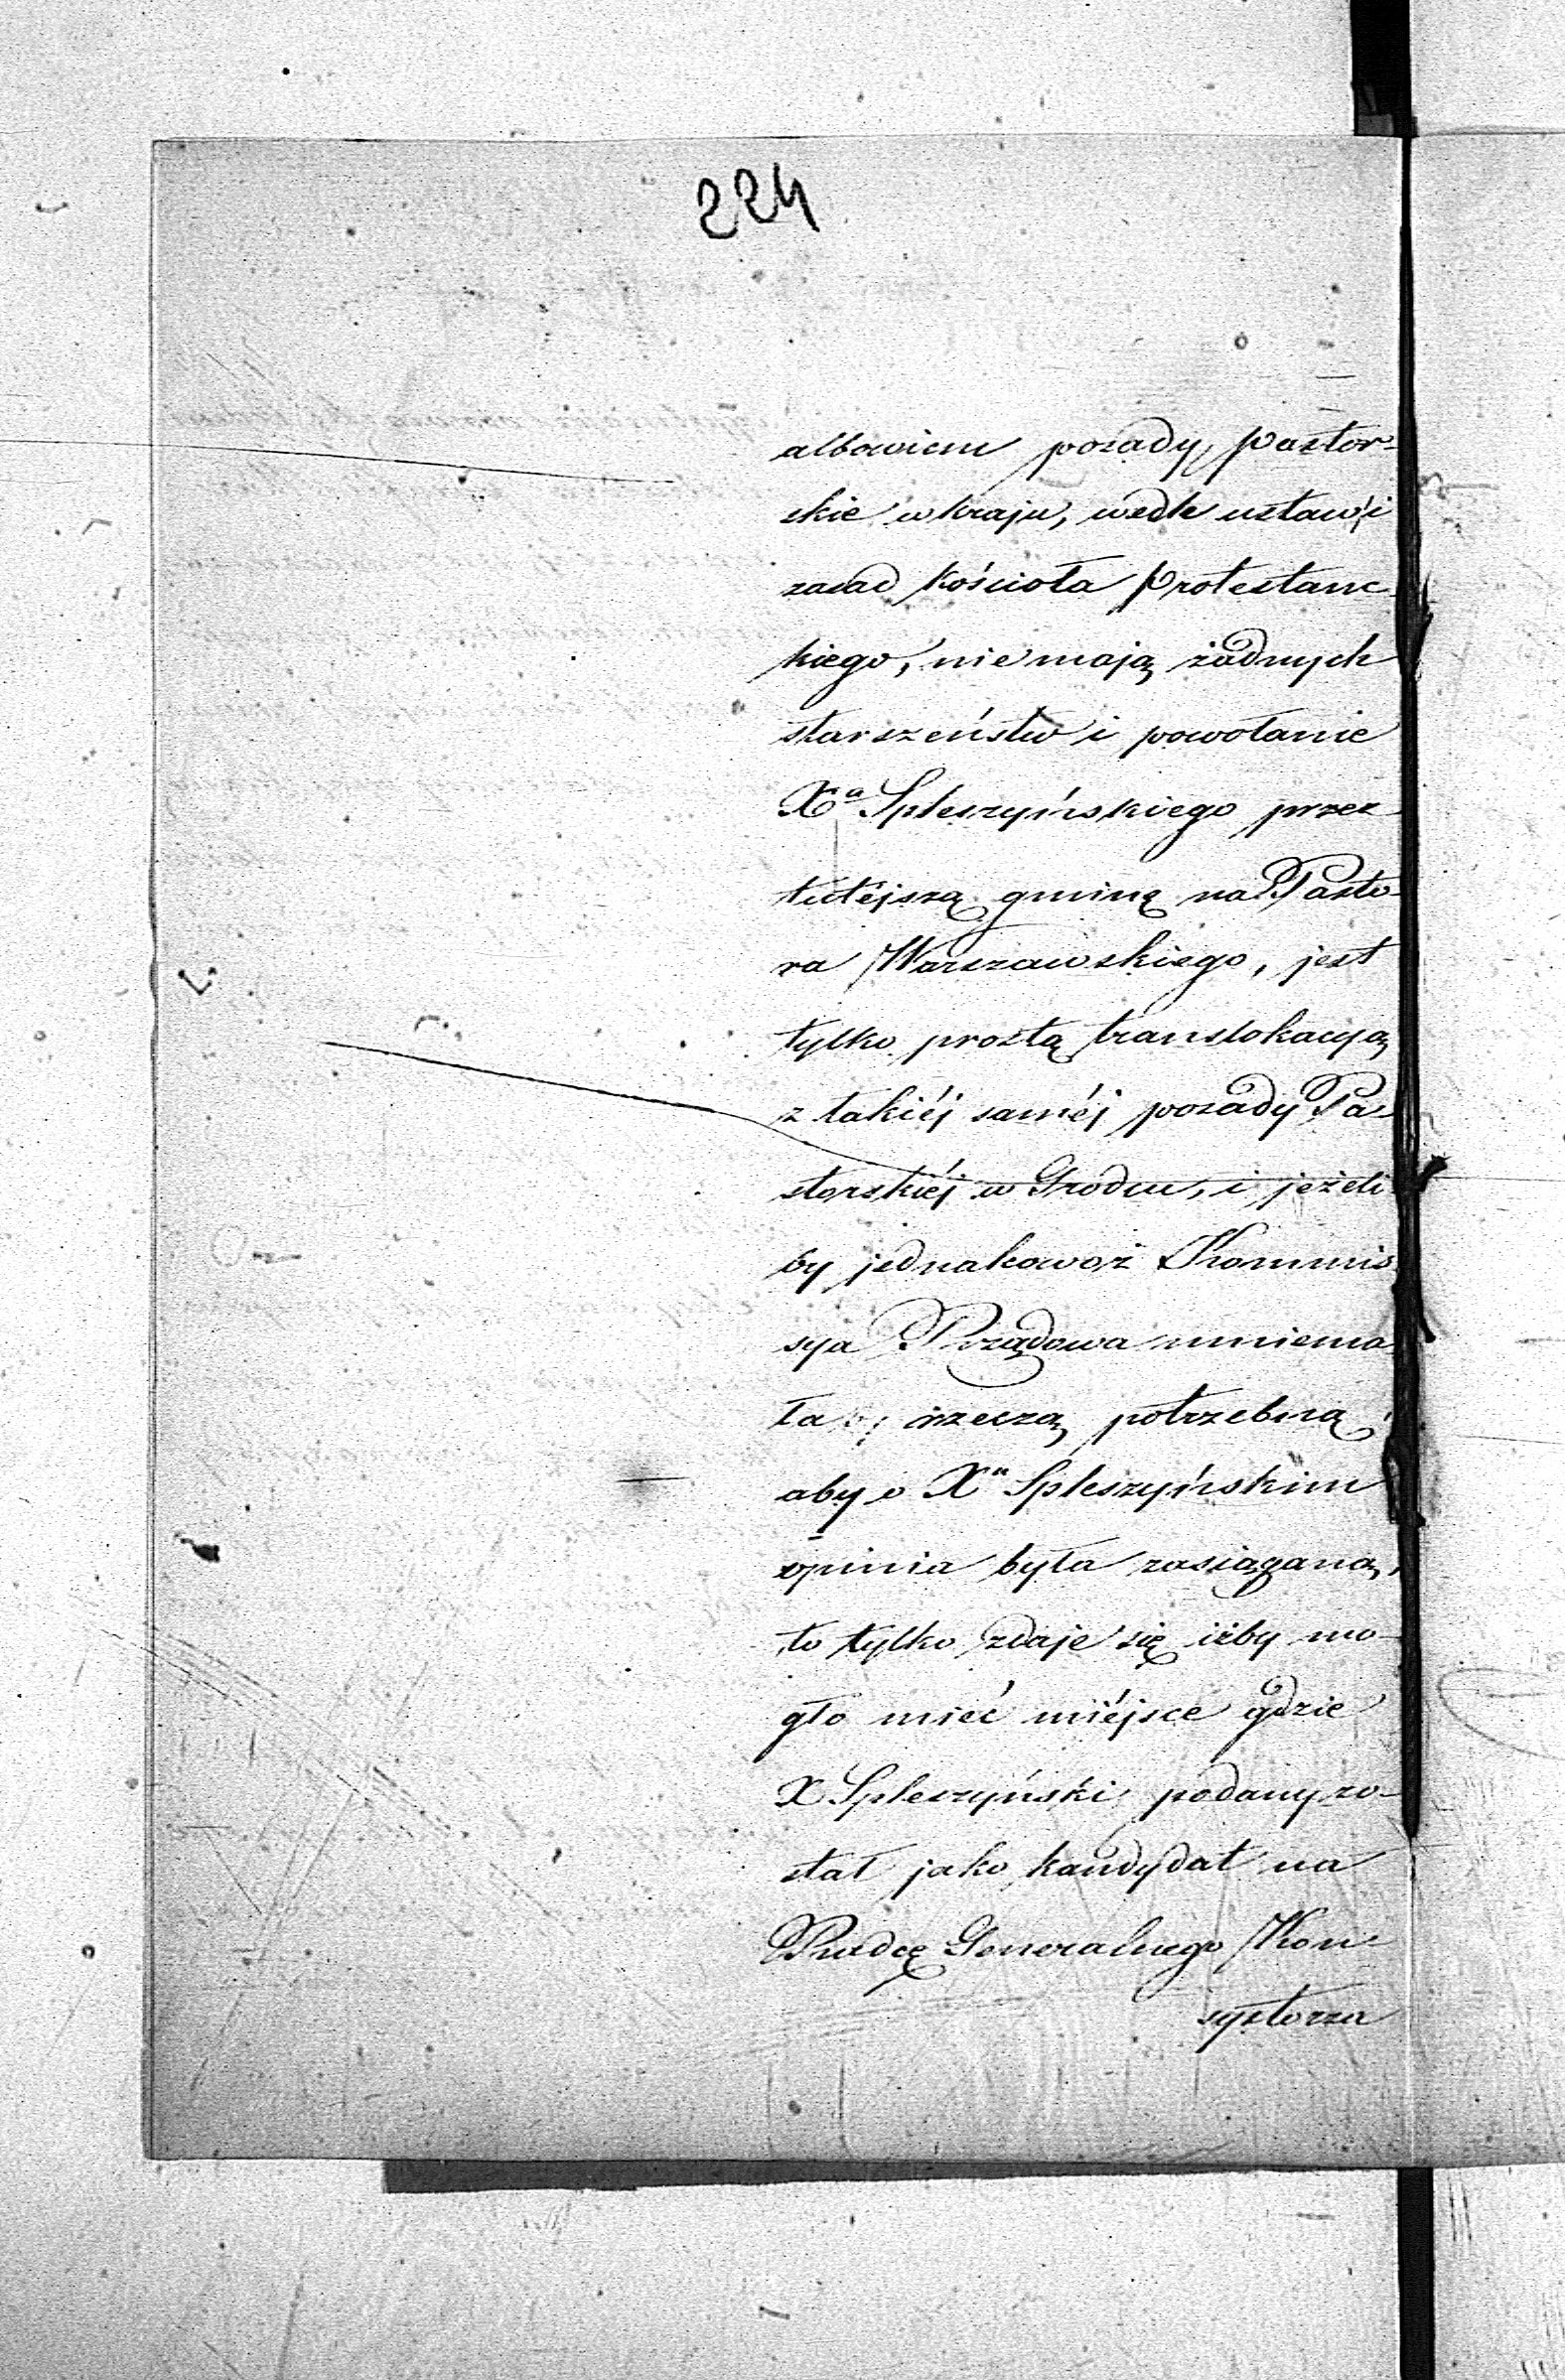 224
albowiem posady Pastor-
skie w kraju, wedle ustaw i
zasad Kościoła Protestanc-
kiego, nie mają żadnych
starszeństw i powołanie
Xa Spleszyńskiego przez
tutéjszą gminę na Pasto-
ra Warszawskiego, jest
tylko prostą translokacyą
z takiéj saméj posady Pa-
storskiéj w Grodnie, i jeżeli
by jednakowoż Kommis
sya Rządowa mniema
ła rzeczą potrzebną
aby o Xu Spleszyńskim
opinia była zasiąganą,
to tylko zdaje się iżby mo-
gło mieć miéjsce gdzie
X Spleszyński podany zo-
stał jako kandydat na
Radcę Generalnego Kon-
systorza